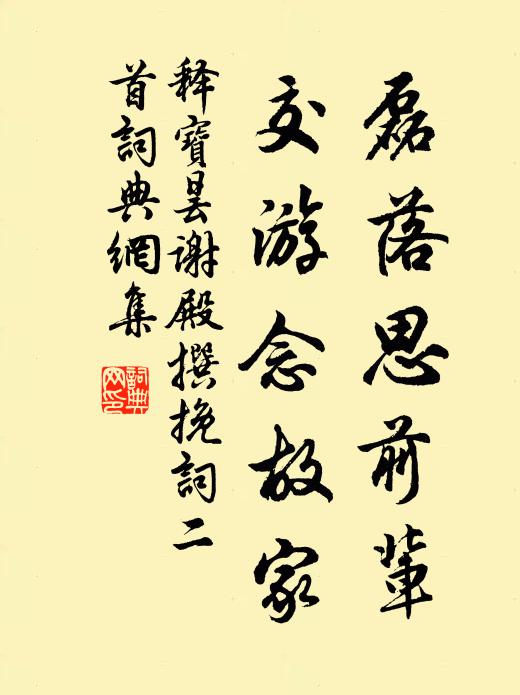 磊落思前輩
交游念故家
释寶昙谢殿撰挽詞二
首詞典網集
詞典網印